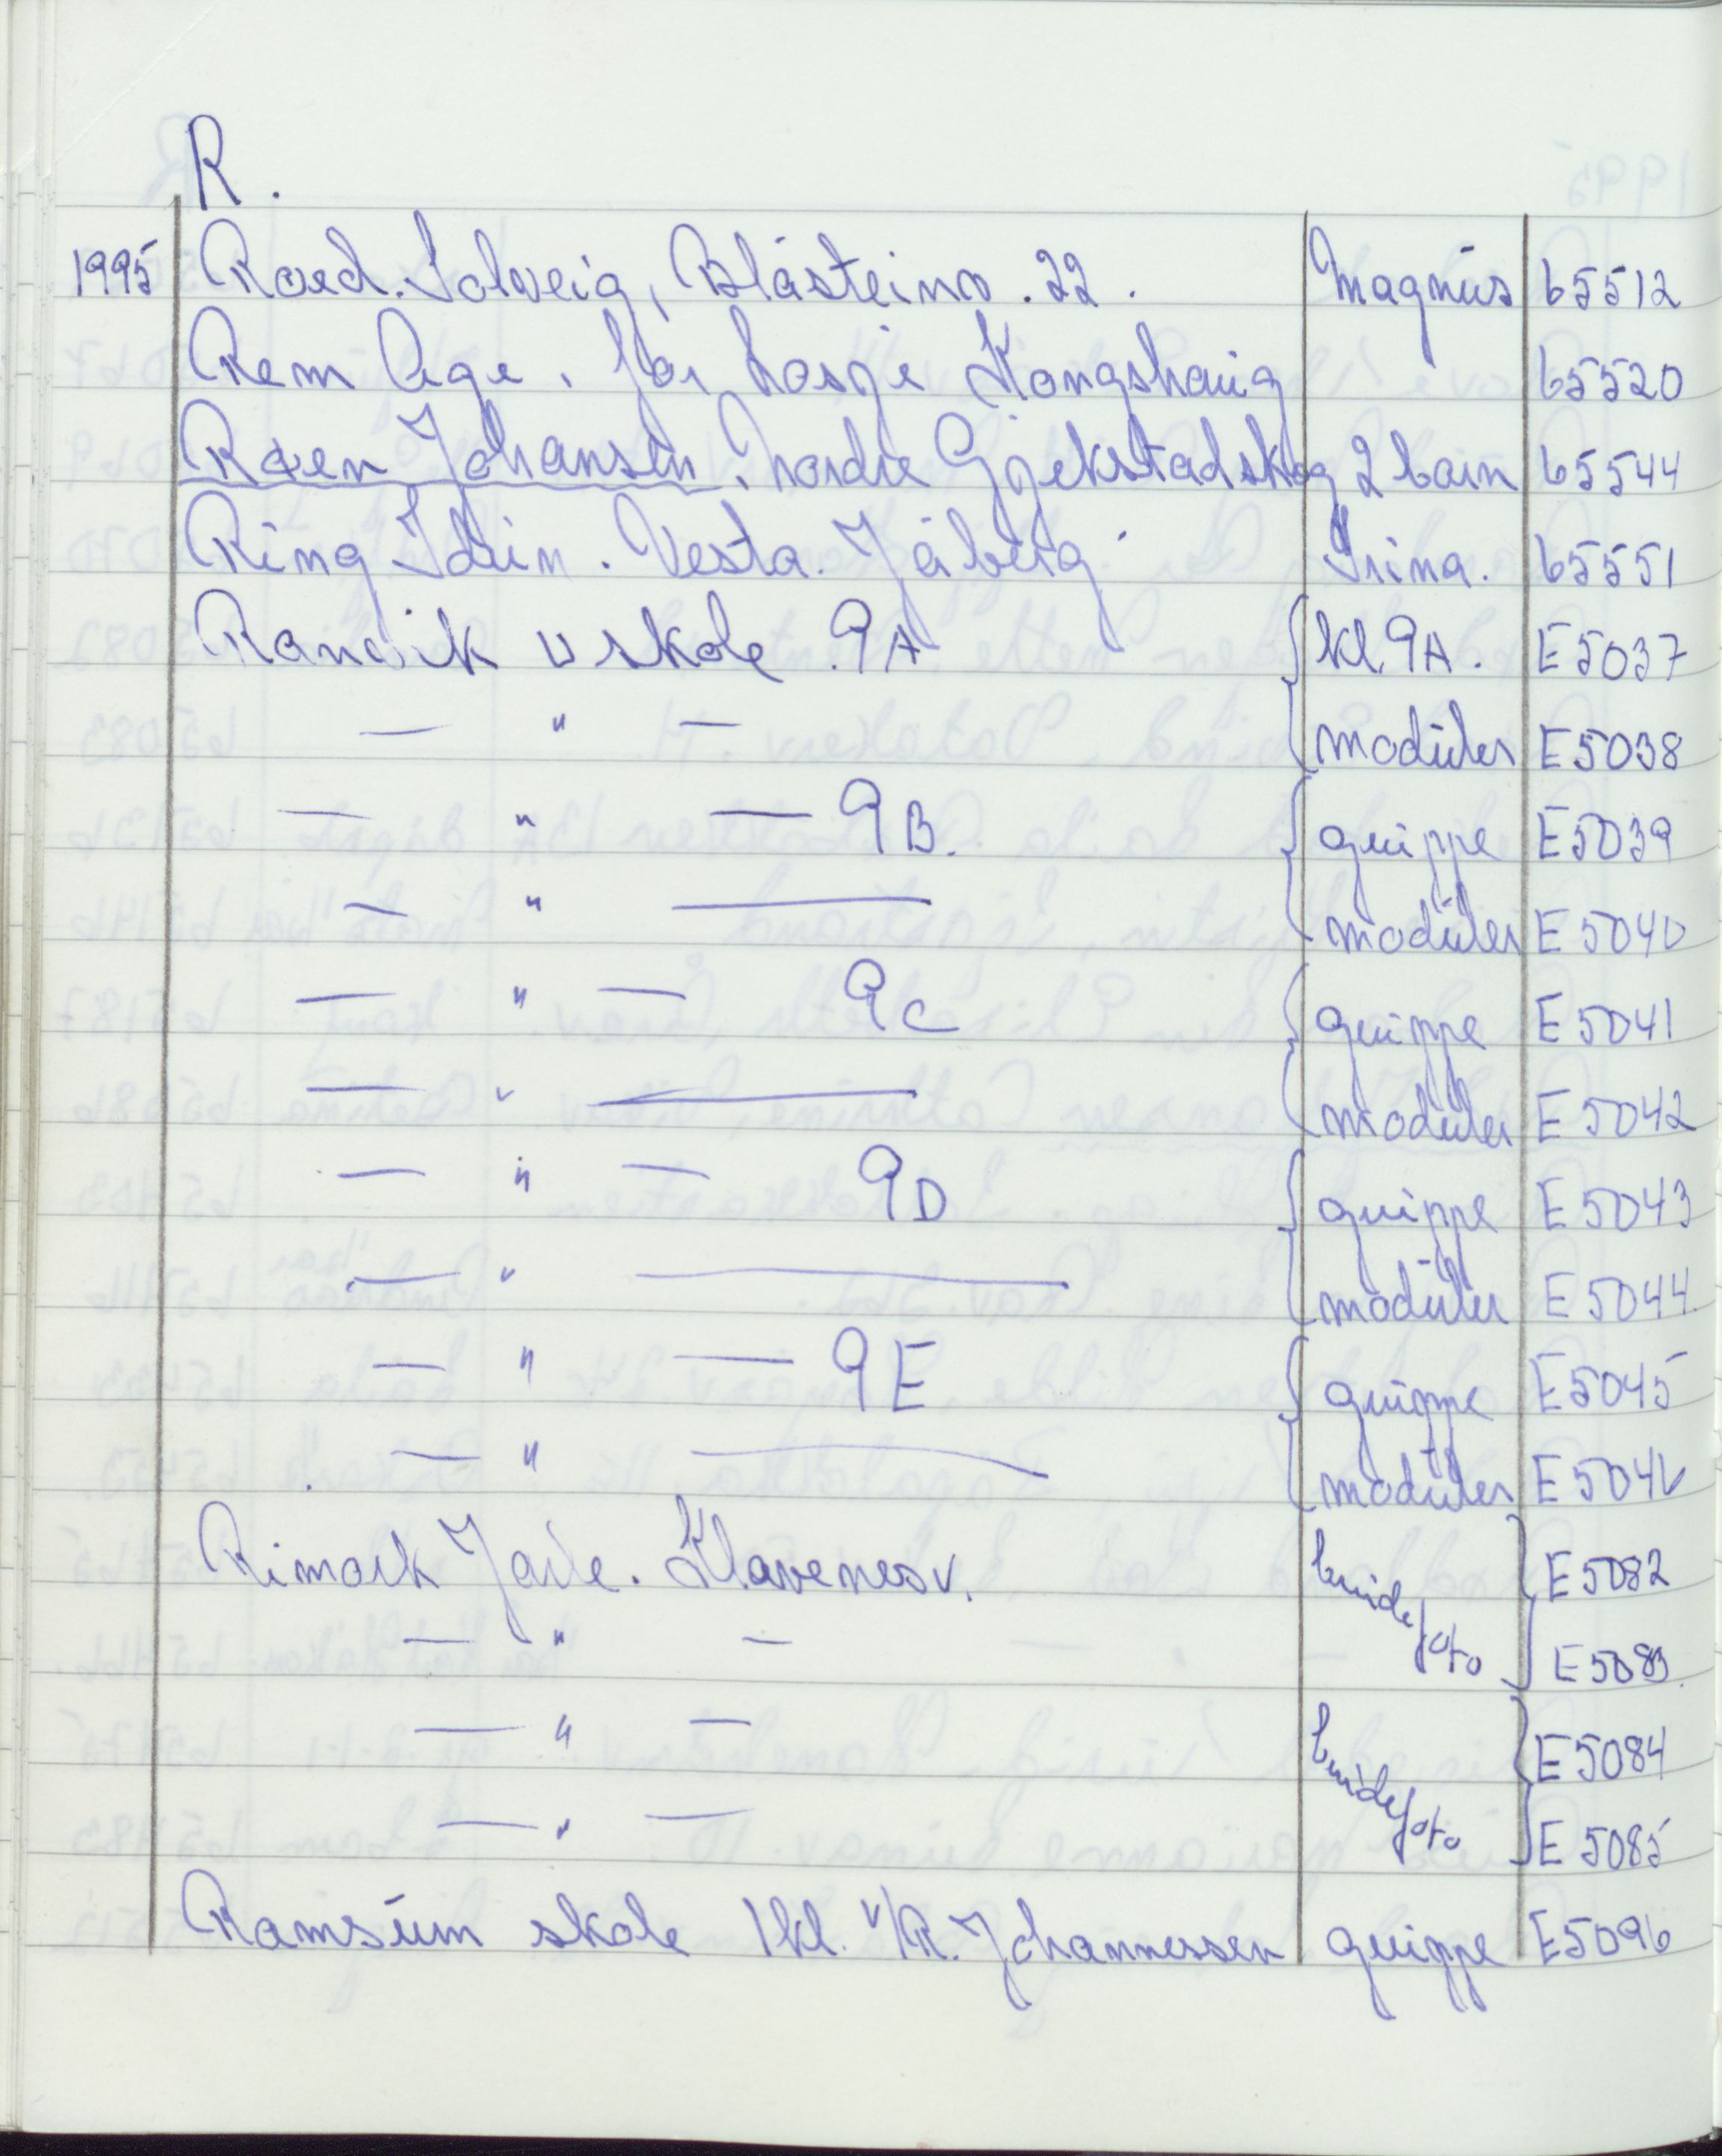 R.
1995 Roed. Solveig, Blåsteinv. 22. Magnus 65512
Rem Åge. för hosp. Kongshaug 65520
Roen Johansen. nordre Gjekstadskog 2 barn 65544
Ring Idun. Vesta. Jåberg Trina. 65551
Ranvik u skole 9A { kl. 9A. E5037
— " — moduler E5038
— " — 9B. { gruppe E5039
— " — moduler E5040
— " — 9C { gruppe E5041
— " — moduler E5042
— " — 9D { gruppe E5043
— " — moduler E5044.
— " — 9E { gruppe E5045
— " — moduler E5046
Rimork Jarle. Klavenesv. brudefoto } E5082
— " — E5083.
— " — brudefoto } E5084
— " — E5085
Ramsum skole 1 kl. v/R. Johannessen gruppe E5096